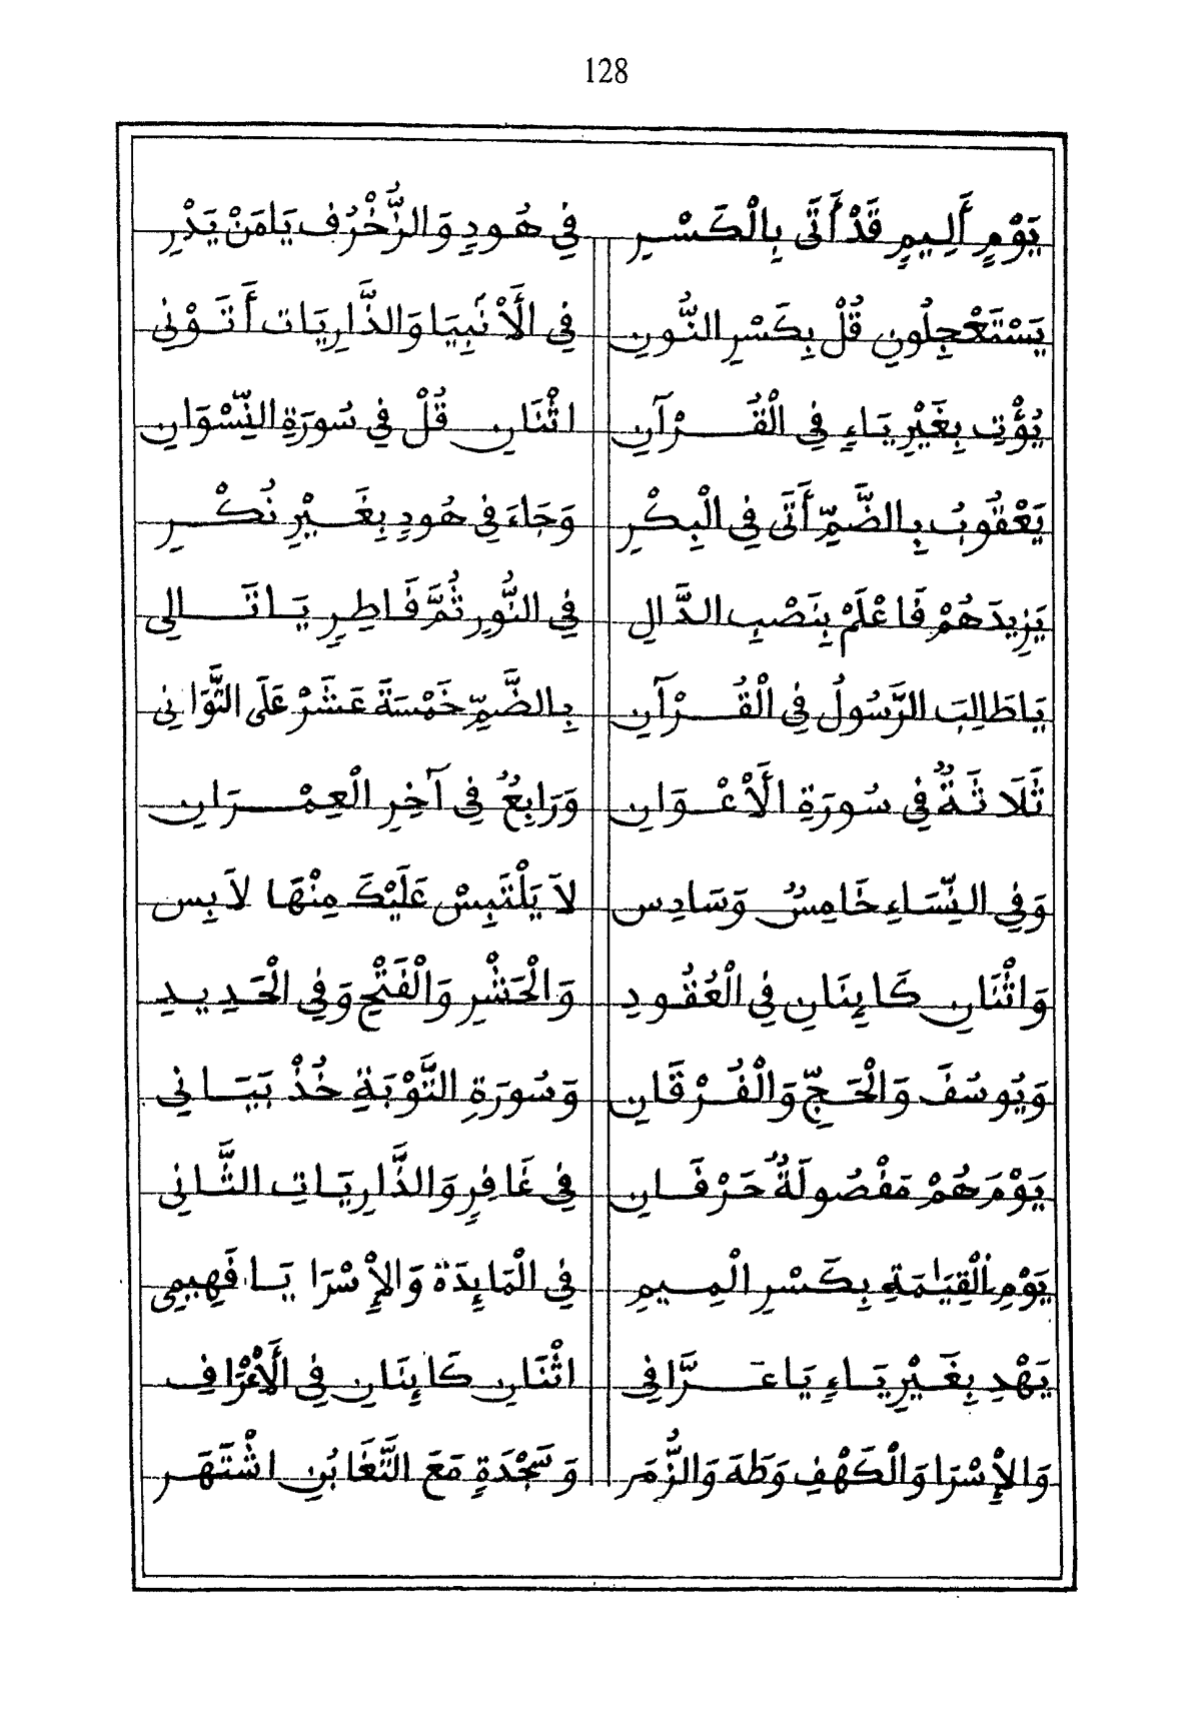 128
يَوْمٍ أَلِيمٍ قَدْ أَتَى بِالْكَسْرِ فِي هُودٍ وَالزُّخْرُفِ يَامَنْ يَدْرِ
يَسْتَعْجِلُونِ قُلْ بِكَسْرِ النُّونِ فِي الْأَنْبِيَا وَالذَّارِيَاتِ أَتَوْنِي
يُؤْتِ بِغَيْرِ يَاءٍ فِي الْقُرْآنِ اثْنَانِ قُلْ فِي سُورَةِ النِّسْوَانِ
يَعْقُوبُ بِالضَّمِّ أَتَى فِي الْبِكْرِ وَجَاءَ فِي هُودٍ بِغَيْرِ نُكْرِ
يَزِيدَهُمْ فَاعْلَمْ بِنَصْبِ الدَّالِ فِي النُّورِ ثُمَّ فَاطِرٍ يَاتَالِي
يَاطَالِبَ الرَّسُولُ فِي الْقُرْآنِ بِالضَّمِّ خَمْسَةَ عَشَرْ عَلَى التَّوَانِي
ثَلَاثَةٌ فِي سُورَةِ الْأَعْوَانِ وَرَابِعٌ فِي آخِرِ الْعِمْرَانِ
وَفِي النِّسَاءِ خَامِسٌ وَسَادِس لاَ يَلْتَبِسْ عَلَيْكَ مِنْهَا لاَبِس
وَاثْنَانِ كَايِنَانِ فِي الْعُقُودِ وَالْحَشْرِ وَالْفَتْحِ وَفِي الْحَدِيدِ
وَيُوسُفَ وَالْحَجِّ وَالْفُرْقَانِ وَسُورَةِ التَّوْبَةِ خُذْ بَيَانِي
يَوْمَ هُمْ مَفْصُولَةٌ حَرْفَانِ فِي غَافِرٍ وَالذَّارِيَاتِ الثَّانِي
يَوْمِ الْقِيَٰمَةِ بِكَسْرِ الْمِيمِ فِي الْمَايِدَة وَالإِسْرَا يَا فَهِيمِي
يَهْدِ بِغَيْرِ يَاءٍ يَا عَرَّافِي اثْنَانِ كَايِنَانِ فِي الْأَعْرَافِ
وَالإِسْرَا وَالْكَهْفِ وَطَهَ وَالزُّمَر وَسَجْدَةٍ مَعَ التَّغَابُنِ اشْتَهَر